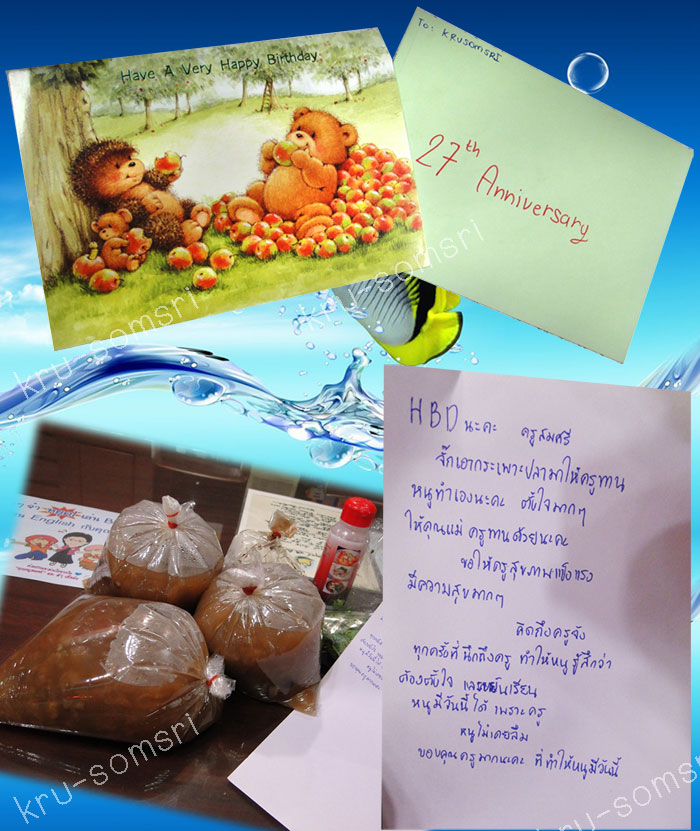 Have A Very Happy Birthday
To: KRUSOMSRI
27th Anniversary
kru-somsri
kru-somsri
HBD นะคะ ครูสมศรี
จิ๊กเอากระเพาะปลามาให้ครูทาน
หนูทำเองนะคะ ตั้งใจมากๆ
ให้คุณแม่ ครูทานด้วยนะคะ
ขอให้ครูสุขภาพแข็งแรง
มีความสุขมากๆ
คิดถึงครูจัง
ทุกครั้งที่นึกถึงครู ทำให้หนูรู้สึกว่า
ต้องตั้งใจ และขยันเรียน
หนูมีวันนี้ได้ เพราะครู
หนูไม่เคยลืม
ขอบคุณครูมากนะคะ ที่ทำให้หนูมีวันนี้
English
kru-somsri
kru-somsri